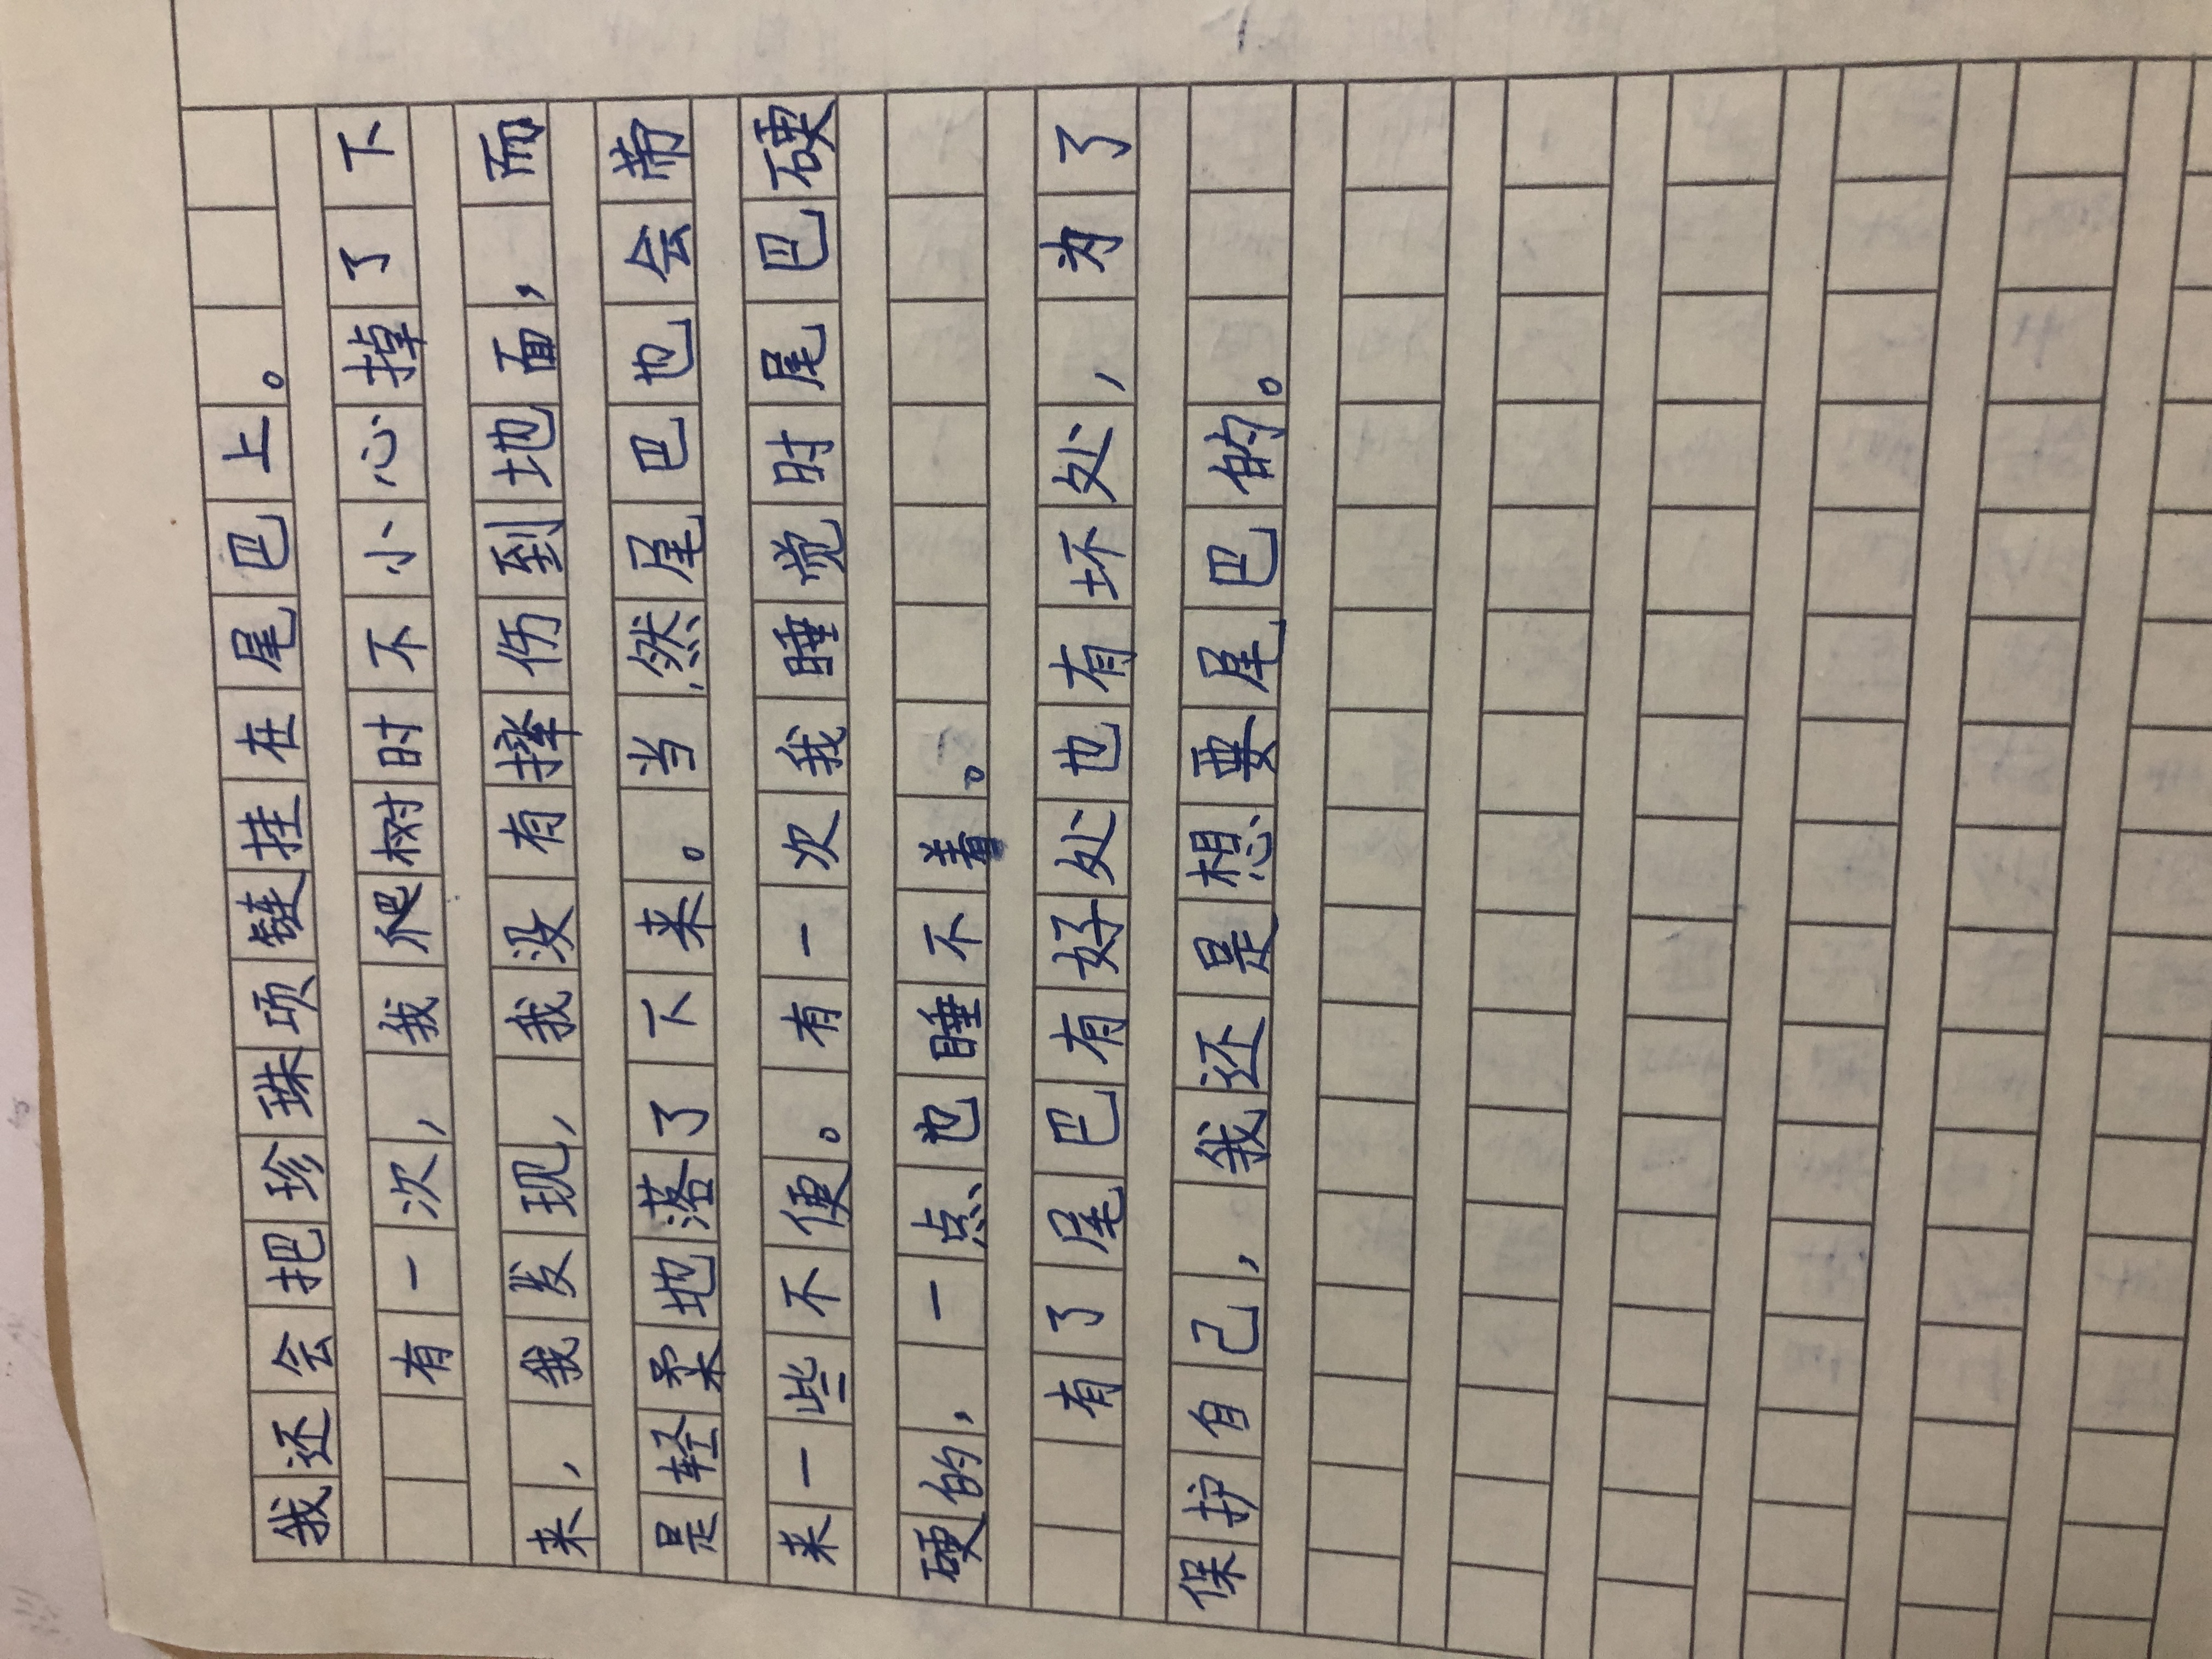 我还会把珍珠项链挂在尾巴上。
有一次，我爬树时不小心掉了下
来，我发现，我没有摔伤到地面，而
是轻柔地落了下来。当然尾巴也会带
来一些不便。有一次我睡觉时尾巴硬
硬的，一点也睡不着。
有了尾巴有好处也有坏处，为了
保护自己，我还是想要尾巴的。